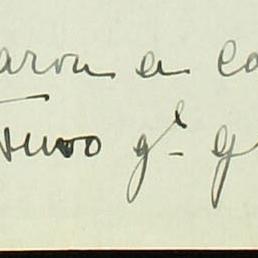 aron a ca
tuvo gl g